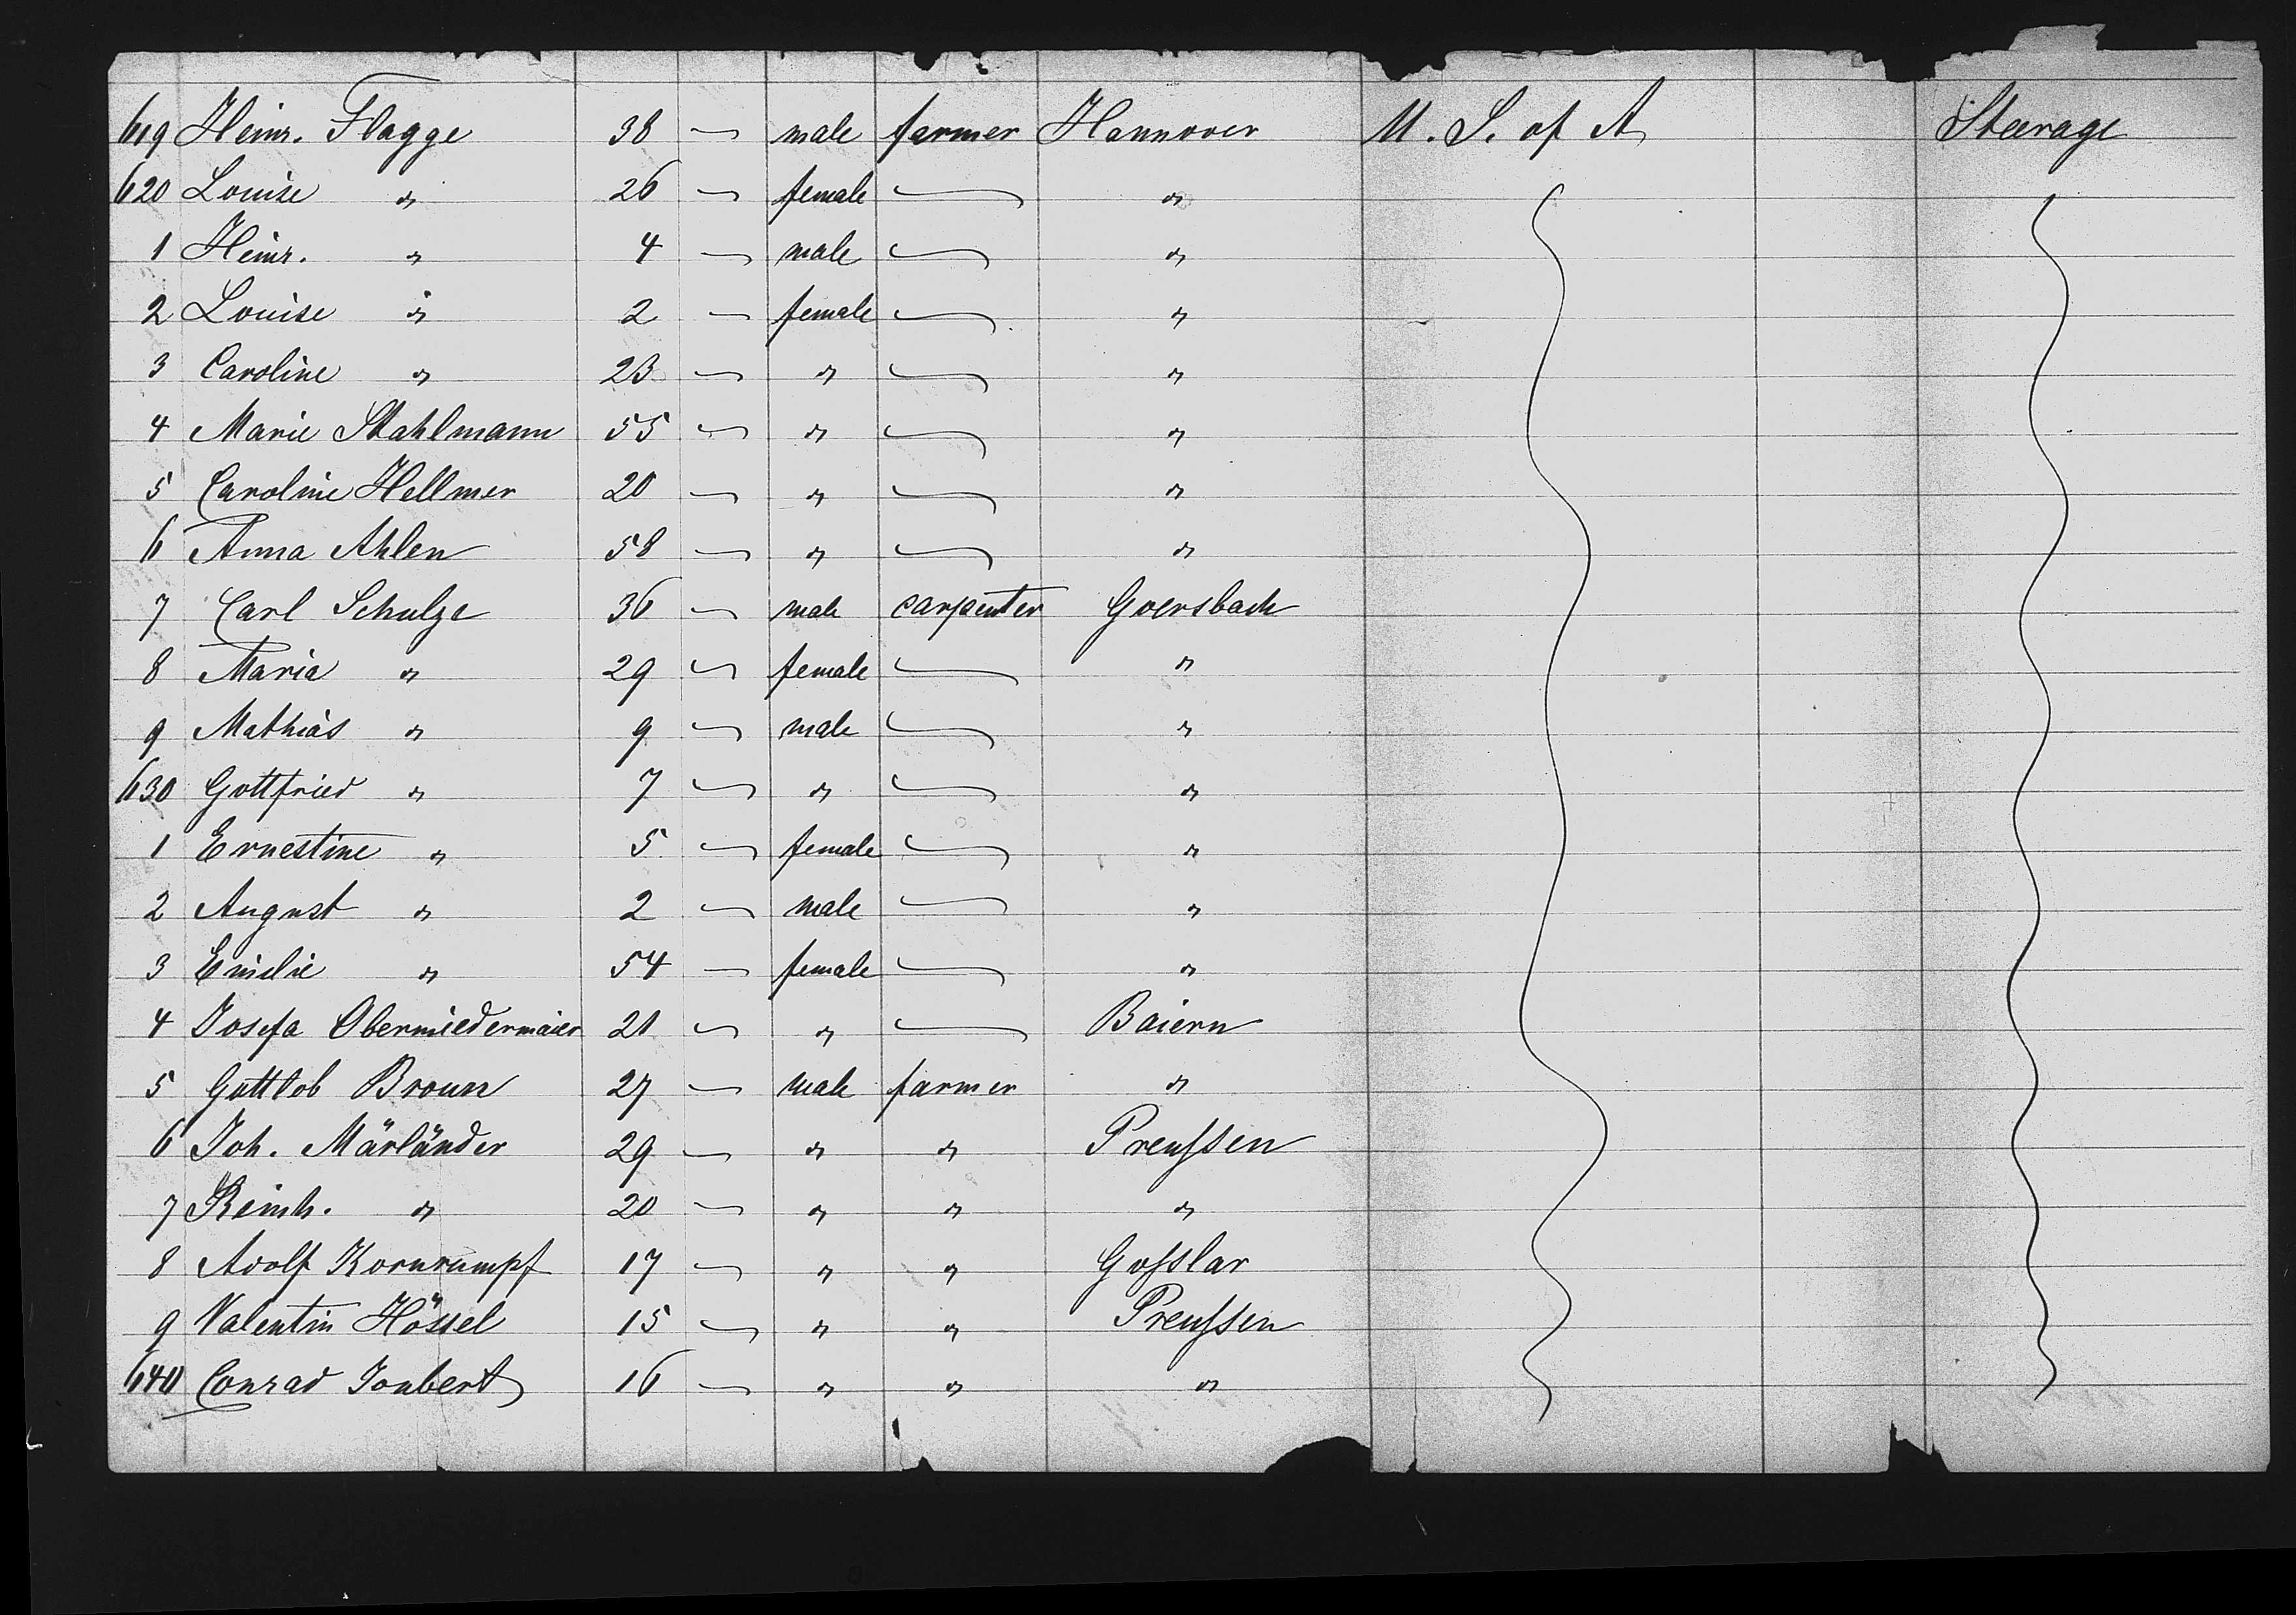 619 Heinr. Flagge 38 — male farmer Hannover U. S. of A Steerage
620 Louise " 26 — female — "
1 Heinr. " 4 — male — "
2 Louise " 2 — female — "
3 Caroline " 23 — " — "
4 Marie Stahlmann 55 — " — "
5 Caroline Hellmer 20 — " — "
6 Anna Ahlen 58 — " — "
7 Carl Schulze 36 — male carpenter Goersbach
8 Maria " 29 — female — "
9 Mathias " 9 — male — "
630 Gottfried " 7 — " — "
1 Ernestine " 5 — female — "
2 August " 2 — male — "
3 Emilie " 54 — female — "
4 Josefa Obermiedermaier 21 — " — Baiern
5 Gottlob Broun 27 — male farmer "
6 Joh. Märländer 29 — " " Preuſsen
7 Reinh. " 20 — " " "
8 Adolf Kornrumpf 17 — " " Goſslar
9 Valentin Hössel 15 — " " Preuſsen
640 Conrad Joubert 16 — " " "